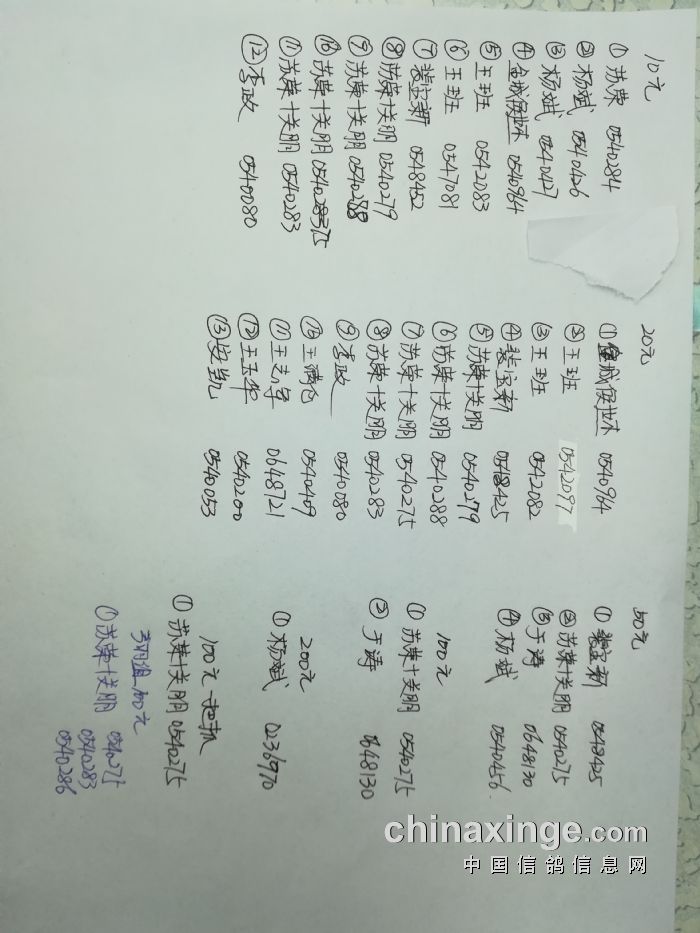 10元
① 苏荣 0540284
② 杨斌 0540426
③ 杨斌 0540427
④ 金城侯世林 0540964
⑤ 王班 0542083
⑥ 王班 0547081
⑦ 裴宝新 0548452
⑧ 苏荣十关明 0540279
⑨ 苏荣十关明 0540288
⑩ 苏荣十关明
⑪ 苏荣十关明 0540283
⑫ 李政 0540080
20元
① 金城侯世林 0540964
② 王班 0542097
③ 王班 0542082
④ 裴宝新 0548425
⑤ 苏荣十关明 0540279
⑥ 苏荣十关明 0540288
⑦ 苏荣十关明 0540275
⑧ 苏荣十关明 0540283
⑨ 李政 0540080
⑩ 王 0540409
⑪ 王志军 0648721
⑫ 王玉华 0540200
⑬ 安凯 0540053
50元
① 裴宝新 0548425
② 苏荣十关明 0540275
③ 于涛 0648130
④ 杨斌 0540456
100元
① 苏荣十关明 0540275
② 于涛 0648130
200元
① 杨斌 0236970
100元
① 苏荣十关明 0540275
100元
① 苏荣十关明 0540275
0540283
0540286
chinaxinge.com
中国信鸽信息网